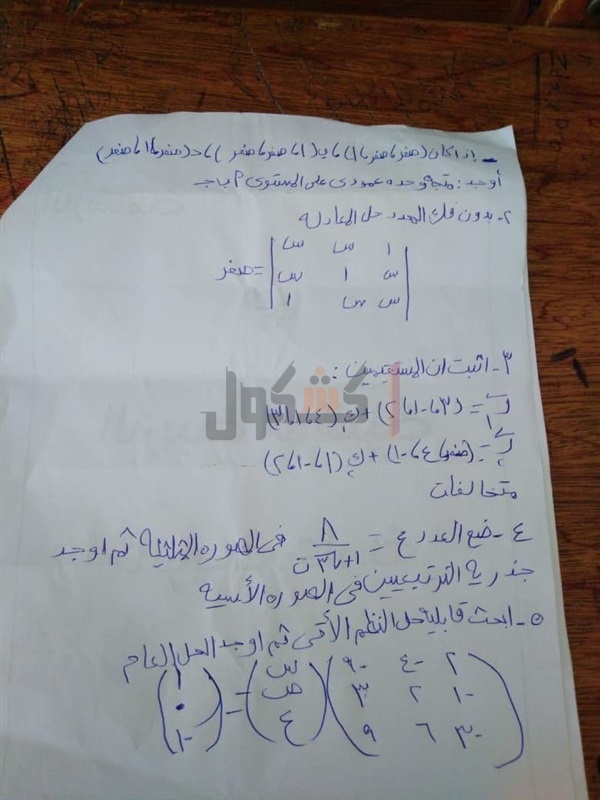 إذا كان (صفر، صفر، ١)، ب (١، صفر، صفر)، جـ (صفر، ١، صفر)
أوجد: متجه وحدة عمودى على المستوى م ب جـ
٢- بدون فك المحدد حل المعادلة
| ١ س س |
| س ١ س | = صفر
| س س ١ |
٣- اثبت ان المستقيمين:
ر١ = (٣، -١، ٢) + ك (٤، ١، ٣)
ر٢ = (صفر، ٤، -١) + ك (١، -١، ٢)
متخالفات
٤- ضع العدد ع = ٨ / (١ + √٣ ت) فى الصورة المثلثية ثم اوجد
جذرية التربيعيين فى الصورة الأسية
٥- ابحث قابلية حل النظم الأتى ثم اوجد الحل العام
( ٢ -٤ -٩ ) ( س ) ( ١ )
( -١ ٢ ٣ ) ( ص ) = ( ٠ )
( -٣ ٦ ٩ ) ( ع ) ( -١ )
كشكول